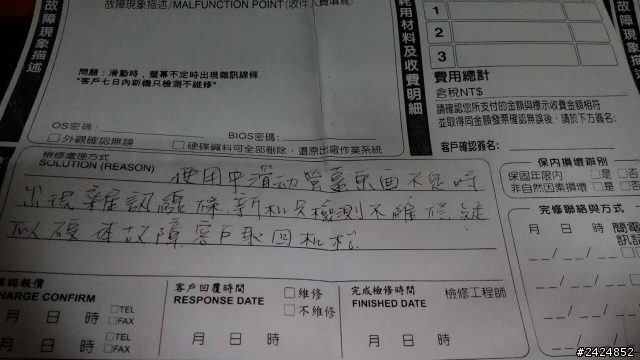 故障現象描述/MALFUNCTION POINT(收件人員填寫)
故障現象描述
問題：滑動時，螢幕不定時出現雜訊線條
"客戶七日內新機只檢測不維修"
OS密碼：
BIOS密碼：
□外觀確認無誤
□硬碟資料可全部刪除，還原出廠作業系統
耗用材料及收費明細
1
2
3
費用總計
含稅NT$
請確認您所支付的金額與標示收費金額相符
並取得同金額發票確認無誤後，請於下方簽名：
客戶確認簽名：
故障現象描述
檢修處理方式
SOLUTION (REASON)
使用中滑动螢幕頁面不定時
出現雜訊線條.新机只檢測不維修.疑
似硬体故障.客戶取回机核.
保內損壞判別
保固年限內 □是 □否
非自然因素損壞 □是
完修聯絡與方式
月 日 時
確認報價
CHARGE CONFIRM
月 日 時 □TEL □FAX
月 日 時 □TEL □FAX
客戶回覆時間
RESPONSE DATE
□維修
□不維修
月 日 時
完成檢修時間
FINISHED DATE
月 日 時
檢修工程師
#2424852